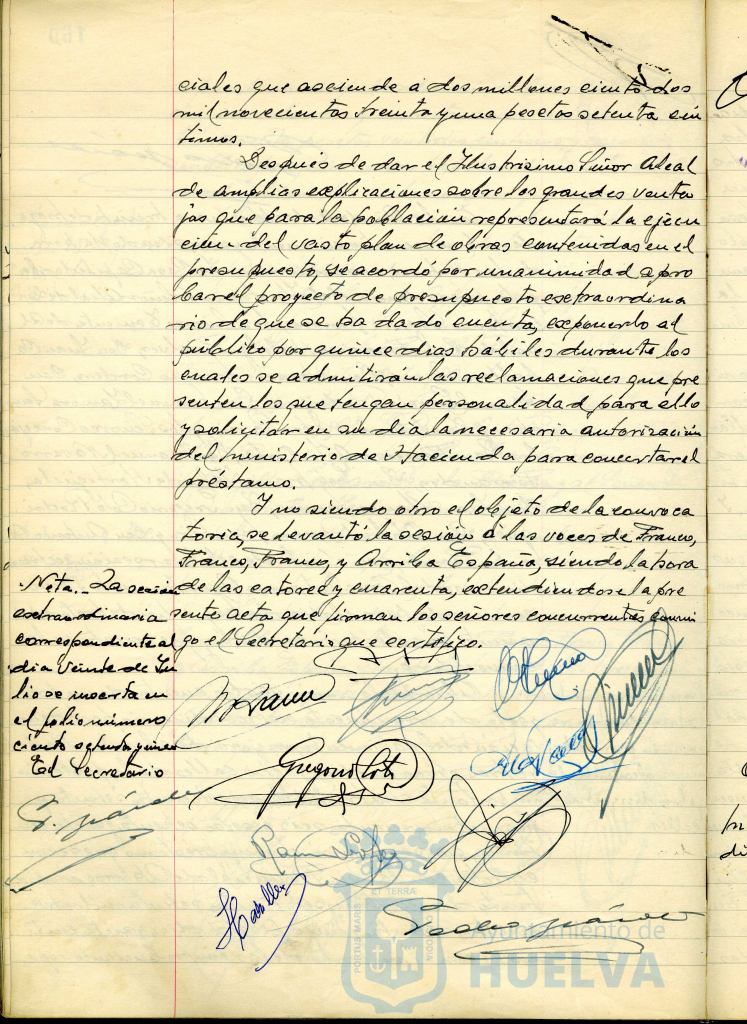 ciales que asciende a dos millones ciento dos
mil novecientas treinta y una pesetas setenta cén
timos.
Después de dar el Ilustrísimo Señor Alcal
de amplias explicaciones sobre las grandes venta
jas que para la población representará la ejecu
ción del vasto plan de obras contenidas en el
presupuesto, se acordó por unanimidad apro
bar el proyecto de presupuesto extraordina
rio de que se ha dado cuenta, exponerlo al
público por quince días hábiles durante los
cuales se admitirán las reclamaciones que pre
senten los que tengan personalidad para ello
y solicitar en su día la necesaria autorización
del ministerio de Hacienda para concertar el
préstamo.
Y no siendo otro el objeto de la convoca
toria, se levantó la sesión a las voces de Franco,
Franco, Franco, y Arriba España, siendo la hora
de las catorce y cuarenta, extendiendose la pre
sente acta que firman los señores concurrentes conmi
go el Secretario que certifico.
Nota.- La sesión
extraordinaria
correspondiente al
día veinte de Ju
lio se inserta en
el folio número
ciento setenta y
El Secretario
Gregorio
Ramón
Pedro
PORTUS MARIS
ET TERRÆ
CUSTODIA
Ayuntamiento de
HUELVA